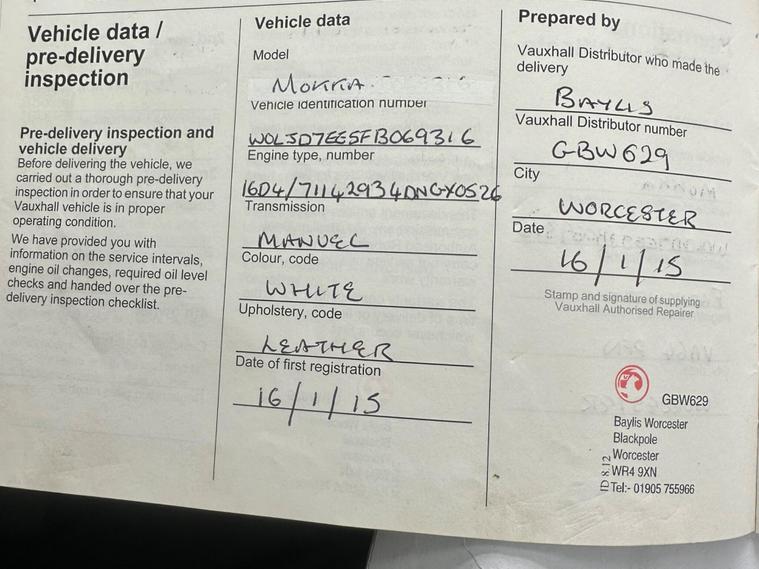 Vehicle data /
pre-delivery
inspection
Pre-delivery inspection and
vehicle delivery
Before delivering the vehicle, we
carried out a thorough pre-delivery
inspection in order to ensure that your
Vauxhall vehicle is in proper
operating condition.
We have provided you with
information on the service intervals,
engine oil changes, required oil level
checks and handed over the pre-
delivery inspection checklist.
Vehicle data
Model
MOKKA
Vehicle identification number
W0LJD7EE5FB069316
Engine type, number
16D4/71142934DNGX0526
Transmission
MANUEL
Colour, code
WHITE
Upholstery, code
LEATHER
Date of first registration
16/1/15
Prepared by
Vauxhall Distributor who made the
delivery
BAYLIS
Vauxhall Distributor number
GBW629
City
WORCESTER
Date
16/1/15
Stamp and signature of supplying
Vauxhall Authorised Repairer
GBW629
Baylis Worcester
Blackpole
Worcester
WR4 9XN
Tel:- 01905 755966